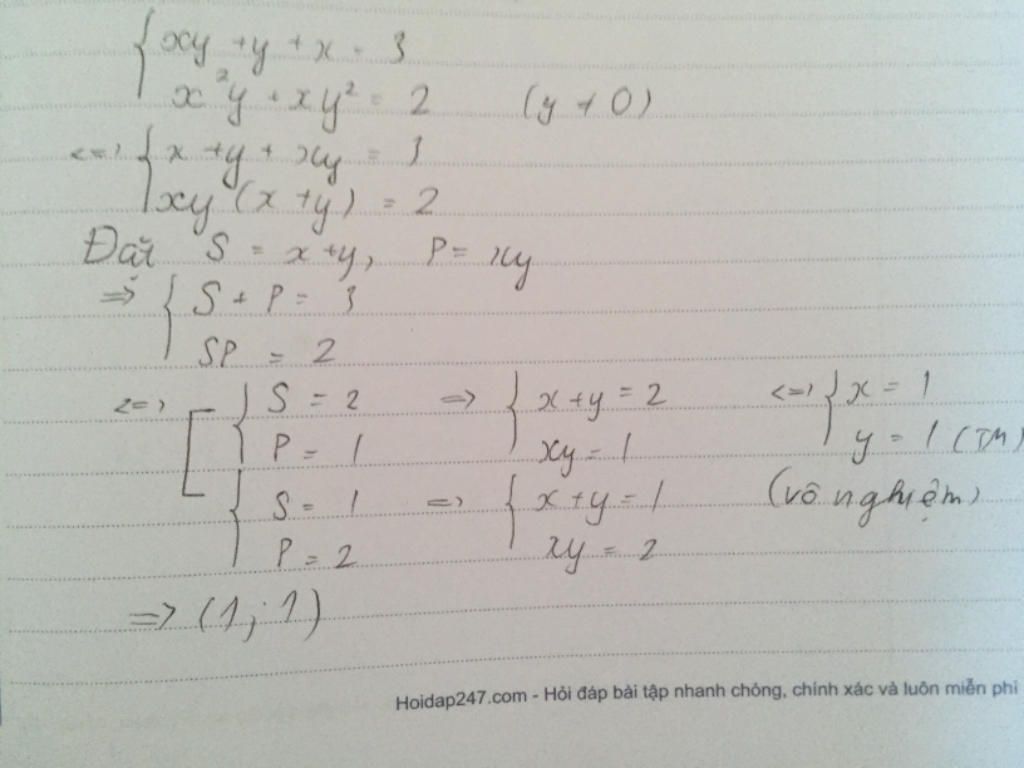 { xy + y + x = 3
x²y + xy² = 2 (y ≠ 0)
<=> { x + y + xy = 3
xy (x + y) = 2
Đặt S = x + y, P = xy
=> { S + P = 3
SP = 2
<=> [ { S = 2 => { x + y = 2 <=> { x = 1
P = 1 xy = 1 y = 1 (TM)
{ S = 1 => { x + y = 1 (vô nghiệm)
P = 2 xy = 2
=> (1; 1)
Hoidap247.com - Hỏi đáp bài tập nhanh chóng, chính xác và luôn miễn phí